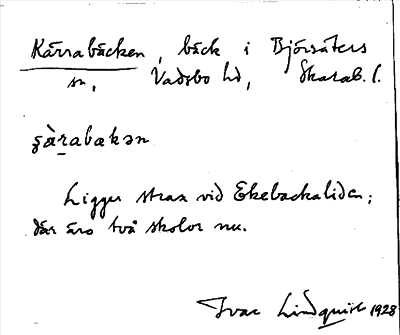 Kärrabäcken, bäck i Björsäters
sn, Vadsbo hd, Skarab. l.
şàrabakən
Ligger strax vid Ekebackaliden;
där äro två skolor nu.
Ivar Lindquist 1928